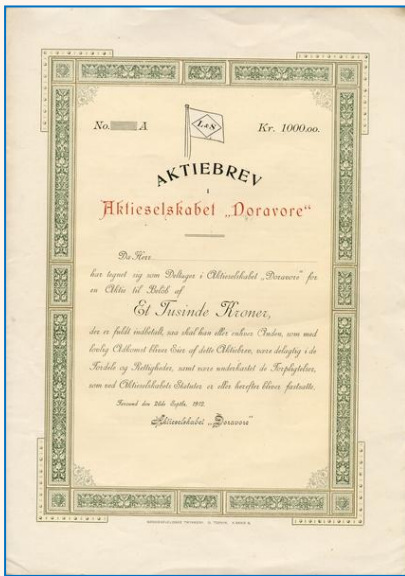 L & S
No. A Kr. 1000.00.
AKTIEBREV
i
Aktieselskabet „Doravore“
Da Herr
har tegnet sig som Deltager i Aktieselskabet „Doravore“ for
en Aktie til Beløb af
Et Tusinde Kroner,
der er fuldt indbetalt, saa skal han eller enhver Anden, som med
lovlig Adkomst bliver Eier af dette Aktiebrev, være delagtig i de
Fordele og Rettigheder, samt være underkastet de Forpligtelser,
som ved Aktieselskabets Statuter er eller herefter bliver fastsatte.
den Septbr. 1912.
Aktieselskabet „Doravore“